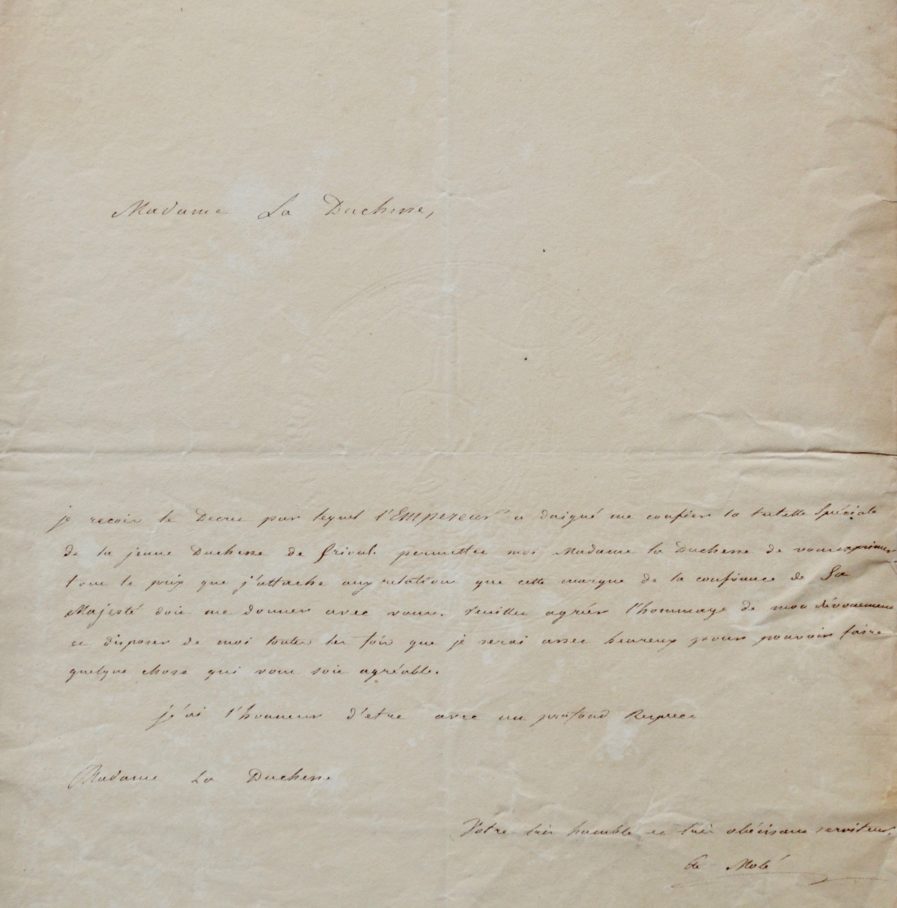 Madame La Duchesse,
je recois le Decret par lequel l'Empereur a daigné me confier la tutelle Spéciale
de la jeune Duchesse de frioul. permettez moi Madame la Duchesse de vous exprimer
tout le prix que j'attache aux relations que cette marque de la confiance de Sa
Majesté doit me donner avec vous. Veuillez agréer l'hommage de mon dévouement
et disposer de moi toutes les fois que je serai assez heureux pour pouvoir faire
quelque chose qui vous soit agréable.
j'ai l'honneur d'etre avec un profond Respect
Madame La Duchesse
Votre très humble et très obéissant serviteur.
Molé